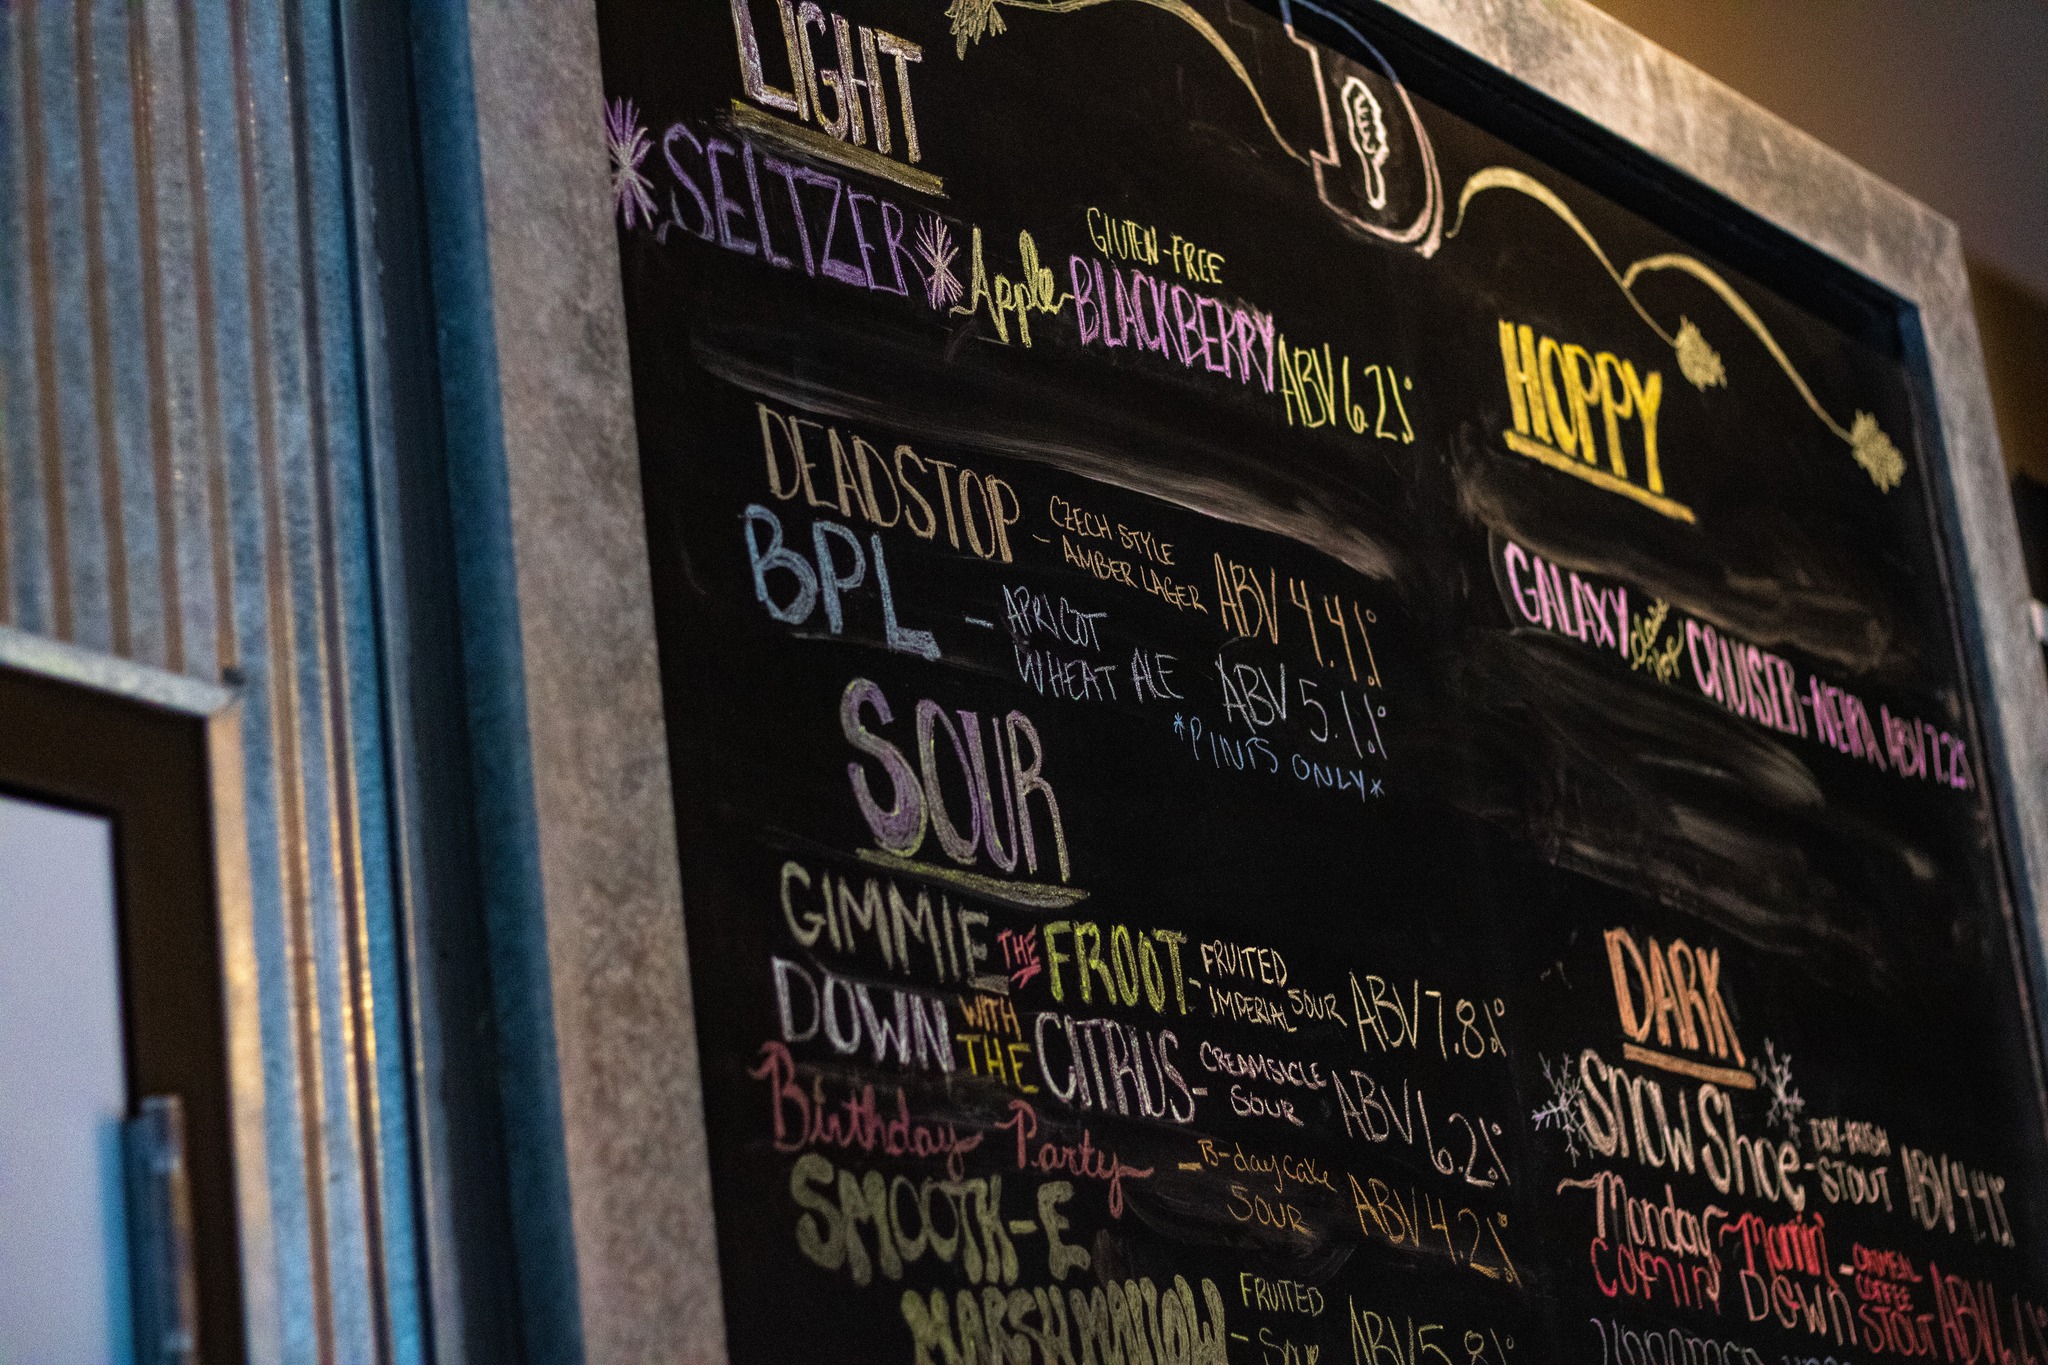 LIGHT
*SELTZER* Apple- BLACKBERRY ABV 6.2%
GLUTEN-FREE
DEADSTOP - CZECH STYLE AMBER LAGER ABV 4.4%
BPL - APRICOT WHEAT ALE ABV 5.1%
*PINTS ONLY*
SOUR
GIMMIE THE FROOT - FRUITED IMPERIAL SOUR ABV 7.8%
DOWN WITH THE CITRUS - CREAMSICLE SOUR ABV 6.2%
Birthday Party - B-day Cake SOUR ABV 4.2%
SMOOTH-E
MARSHMALLOW - FRUITED SOUR ABV 5.8%
HOPPY
GALAXY CRUISER - NEIPA ABV 7.2%
DARK
SNOW SHOE - DRY-IRISH STOUT ABV 4.4%
Monday Mornin' - OATMEAL COFFEE STOUT ABV
COMIN DOWN